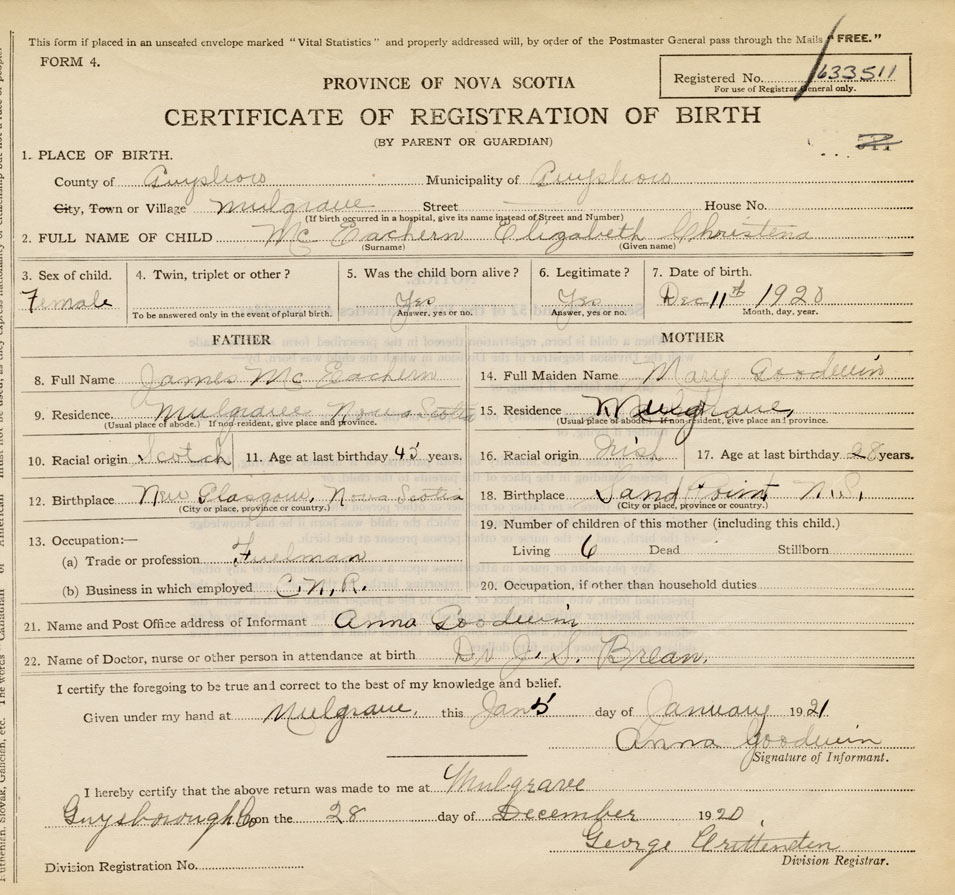 This form if placed in an unsealed envelope marked "Vital Statistics" and properly addressed will, by order of the Postmaster General pass through the Mails "FREE."
FORM 4.
Registered No. 633511
For use of Registrar General only.
PROVINCE OF NOVA SCOTIA
CERTIFICATE OF REGISTRATION OF BIRTH
(BY PARENT OR GUARDIAN)
1. PLACE OF BIRTH.
County of Guysboro Municipality of Guysboro
City, Town or Village Mulgrave Street House No.
(If birth occurred in a hospital, give its name instead of Street and Number)
2. FULL NAME OF CHILD Mc Eachern Elizabeth Christena
(Surname) (Given name)
3. Sex of child. 4. Twin, triplet or other? 5. Was the child born alive? 6. Legitimate? 7. Date of birth.
Female Yes Yes Dec 11th 1920
To be answered only in the event of plural birth. Answer, yes or no. Answer, yes or no. Month, day, year.
FATHER MOTHER
8. Full Name James Mc Eachern 14. Full Maiden Name Mary Goodwin
9. Residence. Mulgrave Nova Scotia 15. Residence Mulgrave,
(Usual place of abode.) If non-resident, give place and province. (Usual place of abode.) If non-resident, give place and province.
10. Racial origin Scotch 11. Age at last birthday 45 years. 16. Racial origin Irish 17. Age at last birthday 28 years.
12. Birthplace New Glasgow, Nova Scotia 18. Birthplace Sand Point N.S.
(City or place, province or country.) (City or place, province or country.)
13. Occupation:— 19. Number of children of this mother (including this child.)
(a) Trade or profession Fuelman Living 6 Dead Stillborn
(b) Business in which employed C.N.R. 20. Occupation, if other than household duties
21. Name and Post Office address of Informant Anna Goodwin
22. Name of Doctor, nurse or other person in attendance at birth Dr J. S. Brean.
I certify the foregoing to be true and correct to the best of my knowledge and belief.
Given under my hand at Mulgrave, this Jan 5 day of January 1921
Anna Goodwin
Signature of Informant.
I hereby certify that the above return was made to me at Mulgrave
Guysborough Co on the 28 day of December 1920.
George Crittenden
Division Registration No. Division Registrar.